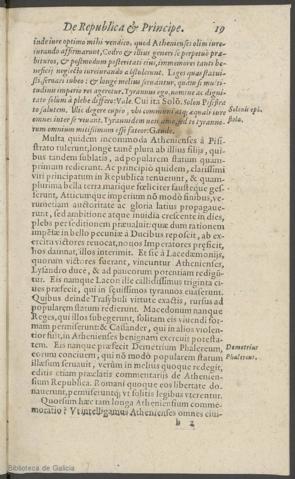 De Republica & Principe. 19
inde iure optimo mihi vendico, quod Athenienses olim iure-
iurando affirmarunt, Codro & illius generi se perpetuò præ-
bituros, & postmodum posteritati eius, immemores tanti be-
neficij neglecto iureiurando abstulerunt. Leges quas statui-
sti, seruari iubeo: & longè melius seruantur, quàm si mu-
titudinis imperio res ageretur. Tyrannus ego, nomine ac digni-
tate solùm à plebe differo: Vale. Cui ita Solō. Solon Pisistra
to salutem. Vbi degere cupio, vbi communi atq; æquali iure
omnes inter se viuant. Tyrannidem non amo, sed te tyranno-
rum omnium mitissimum esse fateor: Gaude.
Solonis epi-
stola.
Multa quidem incommoda Athenienses à Pisi-
strato tulerunt, longe tamē plura ab illius filijs, qui-
bus tandem sublatis, ad popularem statum quam-
primum redierunt. Ac principio quidem, clarissimi
viri principatum in Republica tenuerunt, & quam-
plurima bella terra marique fœliciter faustéque ges-
serunt, Atticumque imperium nō modò finibus, ve-
rumetiam auctoritate ac gloria latius propagaue-
runt, sed ambitione atque inuidia crescente in dies,
plebs per seditionem præualuit: quæ dum rationem
impētæ in bello pecuniæ à Ducibus reposcit, ab ex-
ercitu victores reuocat, nouos Imperatores præficit,
hos damnat, illos interimit. Et sic à Lacedæmonijs,
quorum victores fuerant, vincuntur Athenienses,
Lysandro duce, & ad paucorum potentiam redigū-
tur. Eis namque Lacon ille callidissimus triginta ci-
ues præfecit, qui in sæuissimos tyrannos euaserunt.
Quibus deinde Trasybuli virtute exactis, rursus ad
popularem statum redierunt. Macedonum nanque
Reges, qui illos subegerunt, solitam eis viuendi for-
mam permiserunt: & Cassander, qui in alios violen-
tior fuit, in Athenienses benignam exercuit potesta-
tem. Eis nanque præfecit Demetrium Phalereum,
eorum conciuem, qui nō modò popularem statum
illæsum seruauit, verùm in melius quoque redegit,
editis etiam præclaris commentarijs de Athenien-
sium Republica. Romani quoque eos libertate do-
nauerunt, permiseruntq; vt solitis legibus vterentur.
Demetrius
Phalereus.
Quorsum hæc tam longa Atheniensium comme-
moratio? Vt intelligamus Athenienses omnes ciui-
b 2
Biblioteca de Galicia